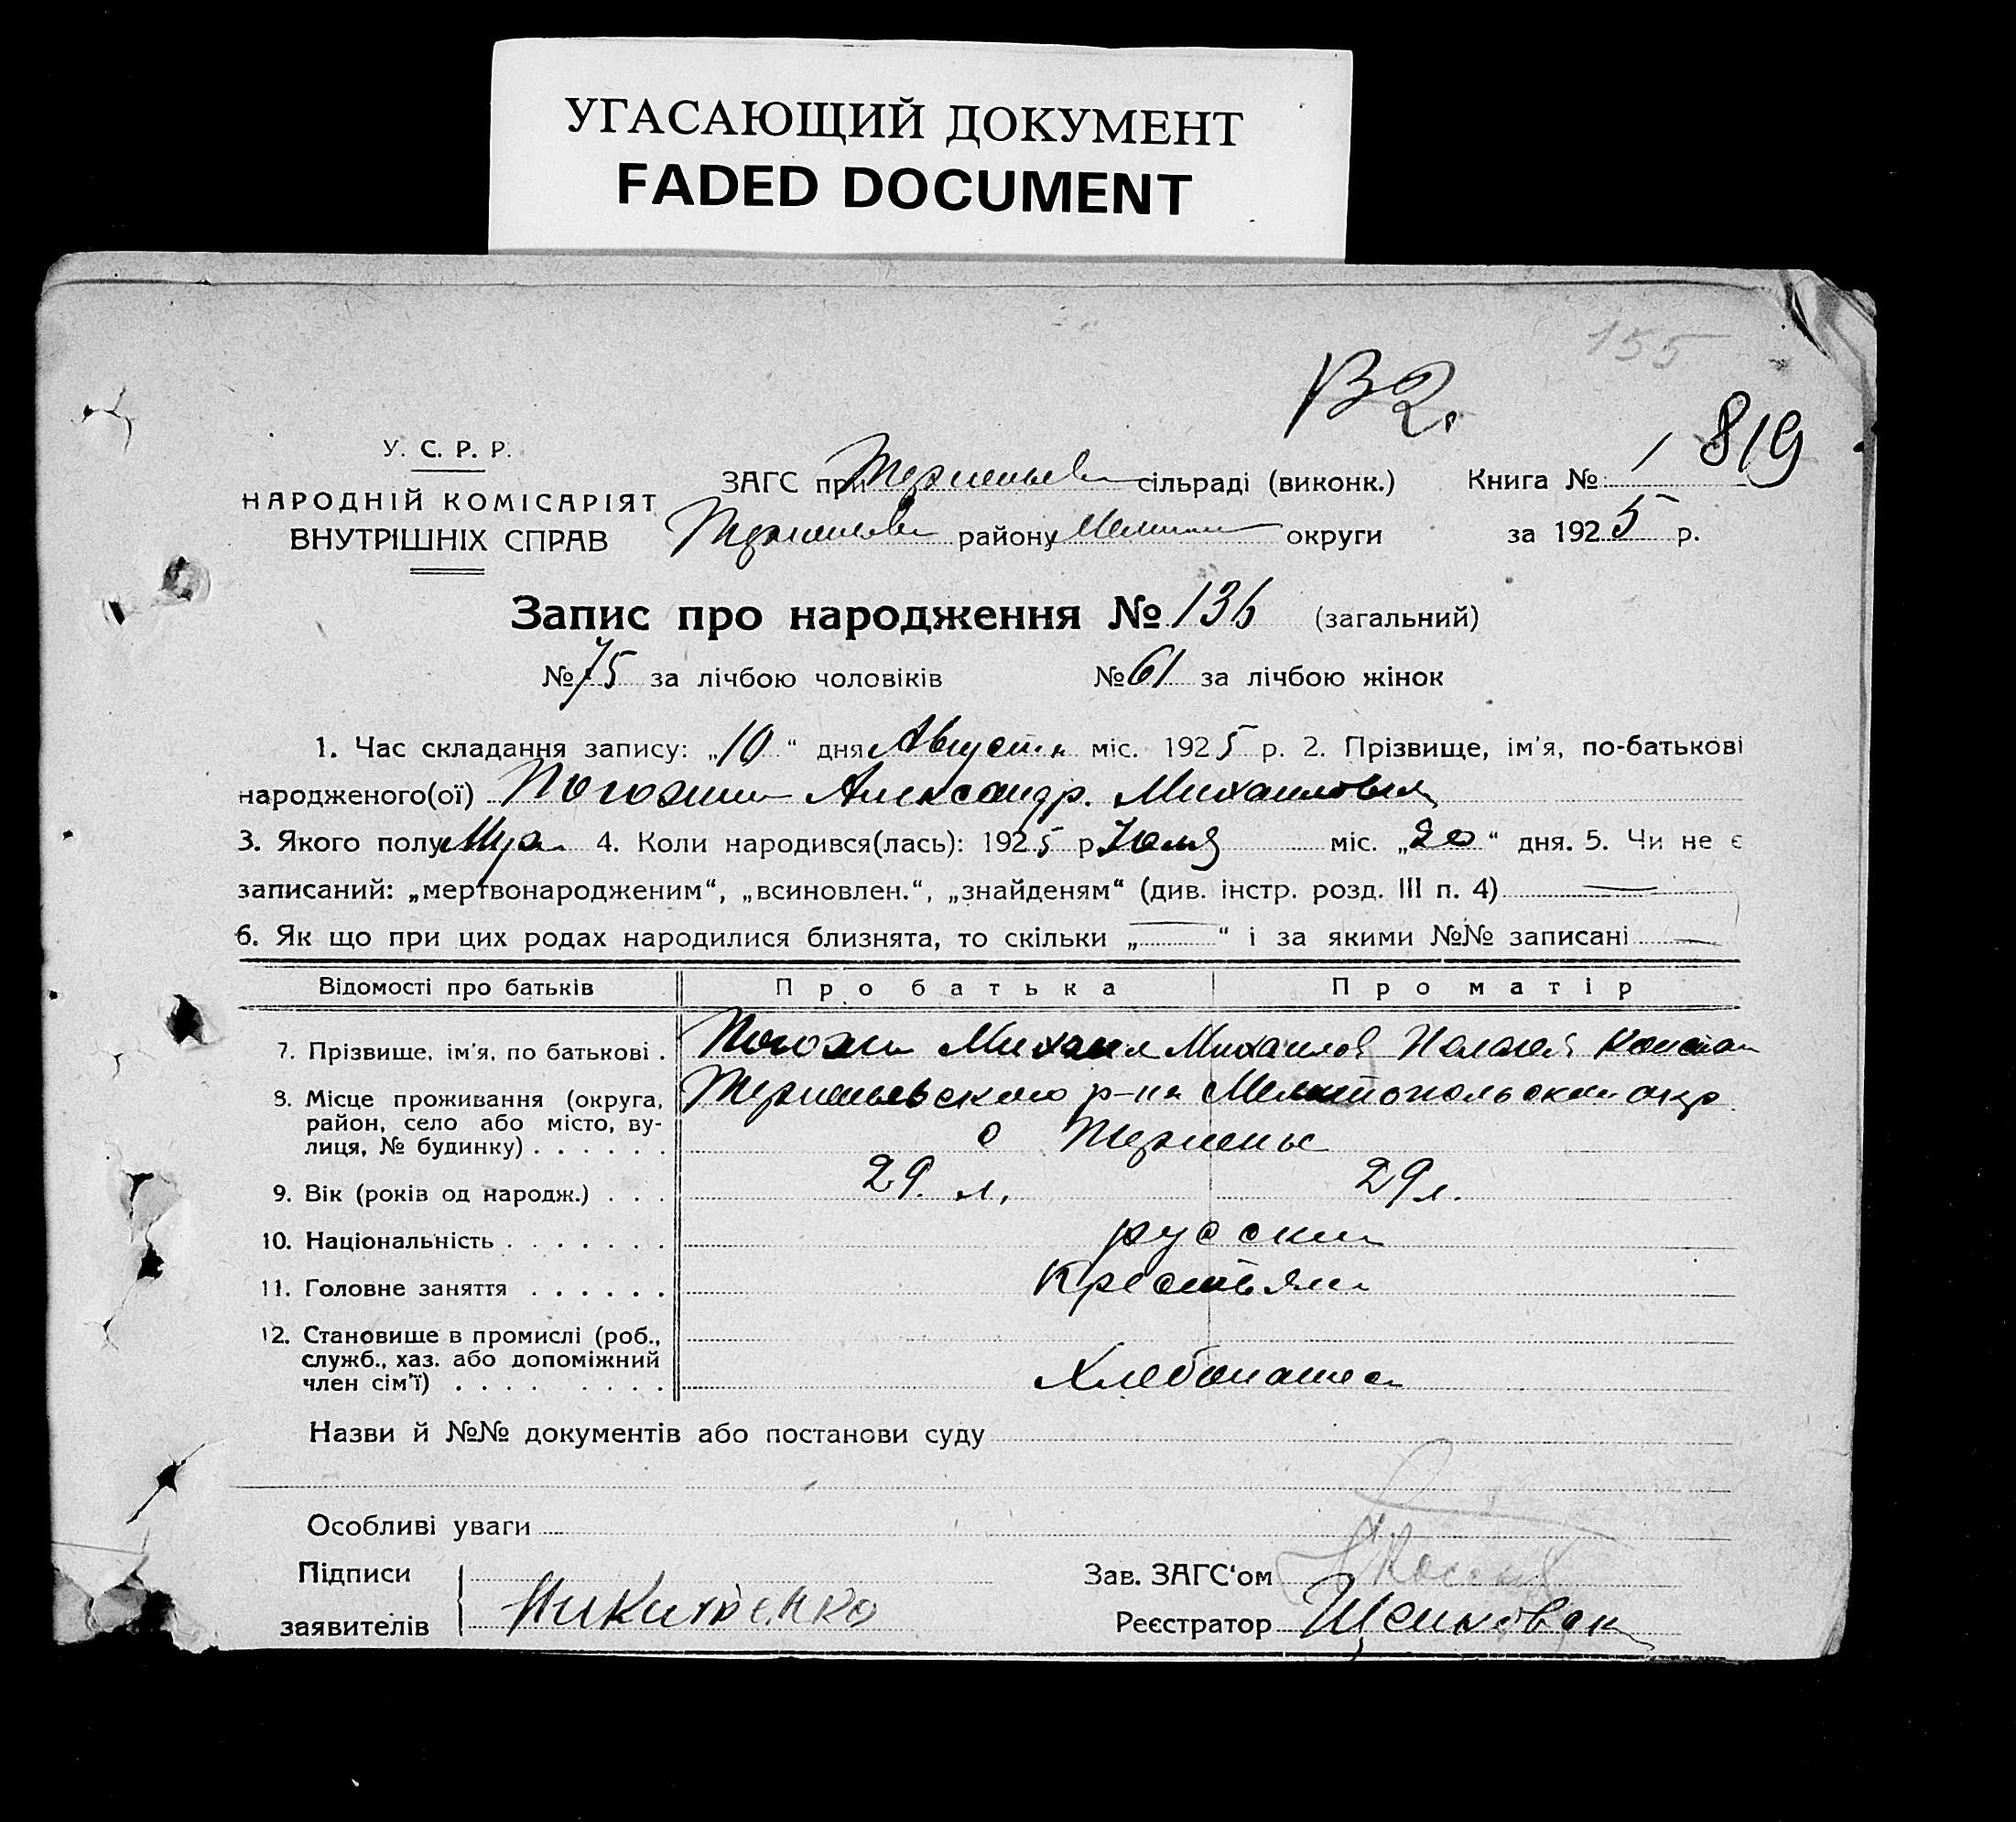 УГАСАЮЩИЙ ДОКУМЕНТ
FADED DOCUMENT
155
В 2.
819
У. С. Р. Р.
НАРОДНІЙ КОМІСАРІЯТ
ВНУТРІШНІХ СПРАВ
ЗАГС при сільраді (виконк.) Книга № 1
району округи за 1925 р.
Запис про народження № 136 (загальний)
№ 75 за лічбою чоловіків № 61 за лічбою жінок
1. Час складання запису: „10“ дня Августа міс. 1925 р. 2. Прізвище, ім'я, по-батькові
народженого(ої) Погожин Александр. Михаилович
3. Якого полу Муж 4. Коли народився(лась): 1925 р. Июля міс. „20“ дня. 5. Чи не є
записаний: „мертвонародженим“, „всиновлен.“, „знайденям“ (див. інстр. розд. III п. 4) —
6. Як що при цих родах народилися близнята, то скільки „—“ і за якими №№ записані —
Відомості про батьків Про батька Про матір
7. Прізвище, ім'я, по батькові . Михаил Михаилов Пелагея Констан
8. Місце проживання (округа,
район, село або місто, ву-
лиця, № будинку) . . . . . .
Терпеньевского р-на Мелитопольскои окр
с Терпенье
9. Вік (років од народж.) . . . 29. л. 29 л.
10. Національність . . . . . . . русские
11. Головне заняття . . . . . . Крестьяне
12. Становище в промислі (роб.,
служб., хаз. або допоміжний
член сім'ї) . . . . . . . . Хлебопашест
Назви й №№ документів або постанови суду
Особливі уваги
Підписи
заявителів
Никитенко
Зав. ЗАГС'ом
Реєстратор